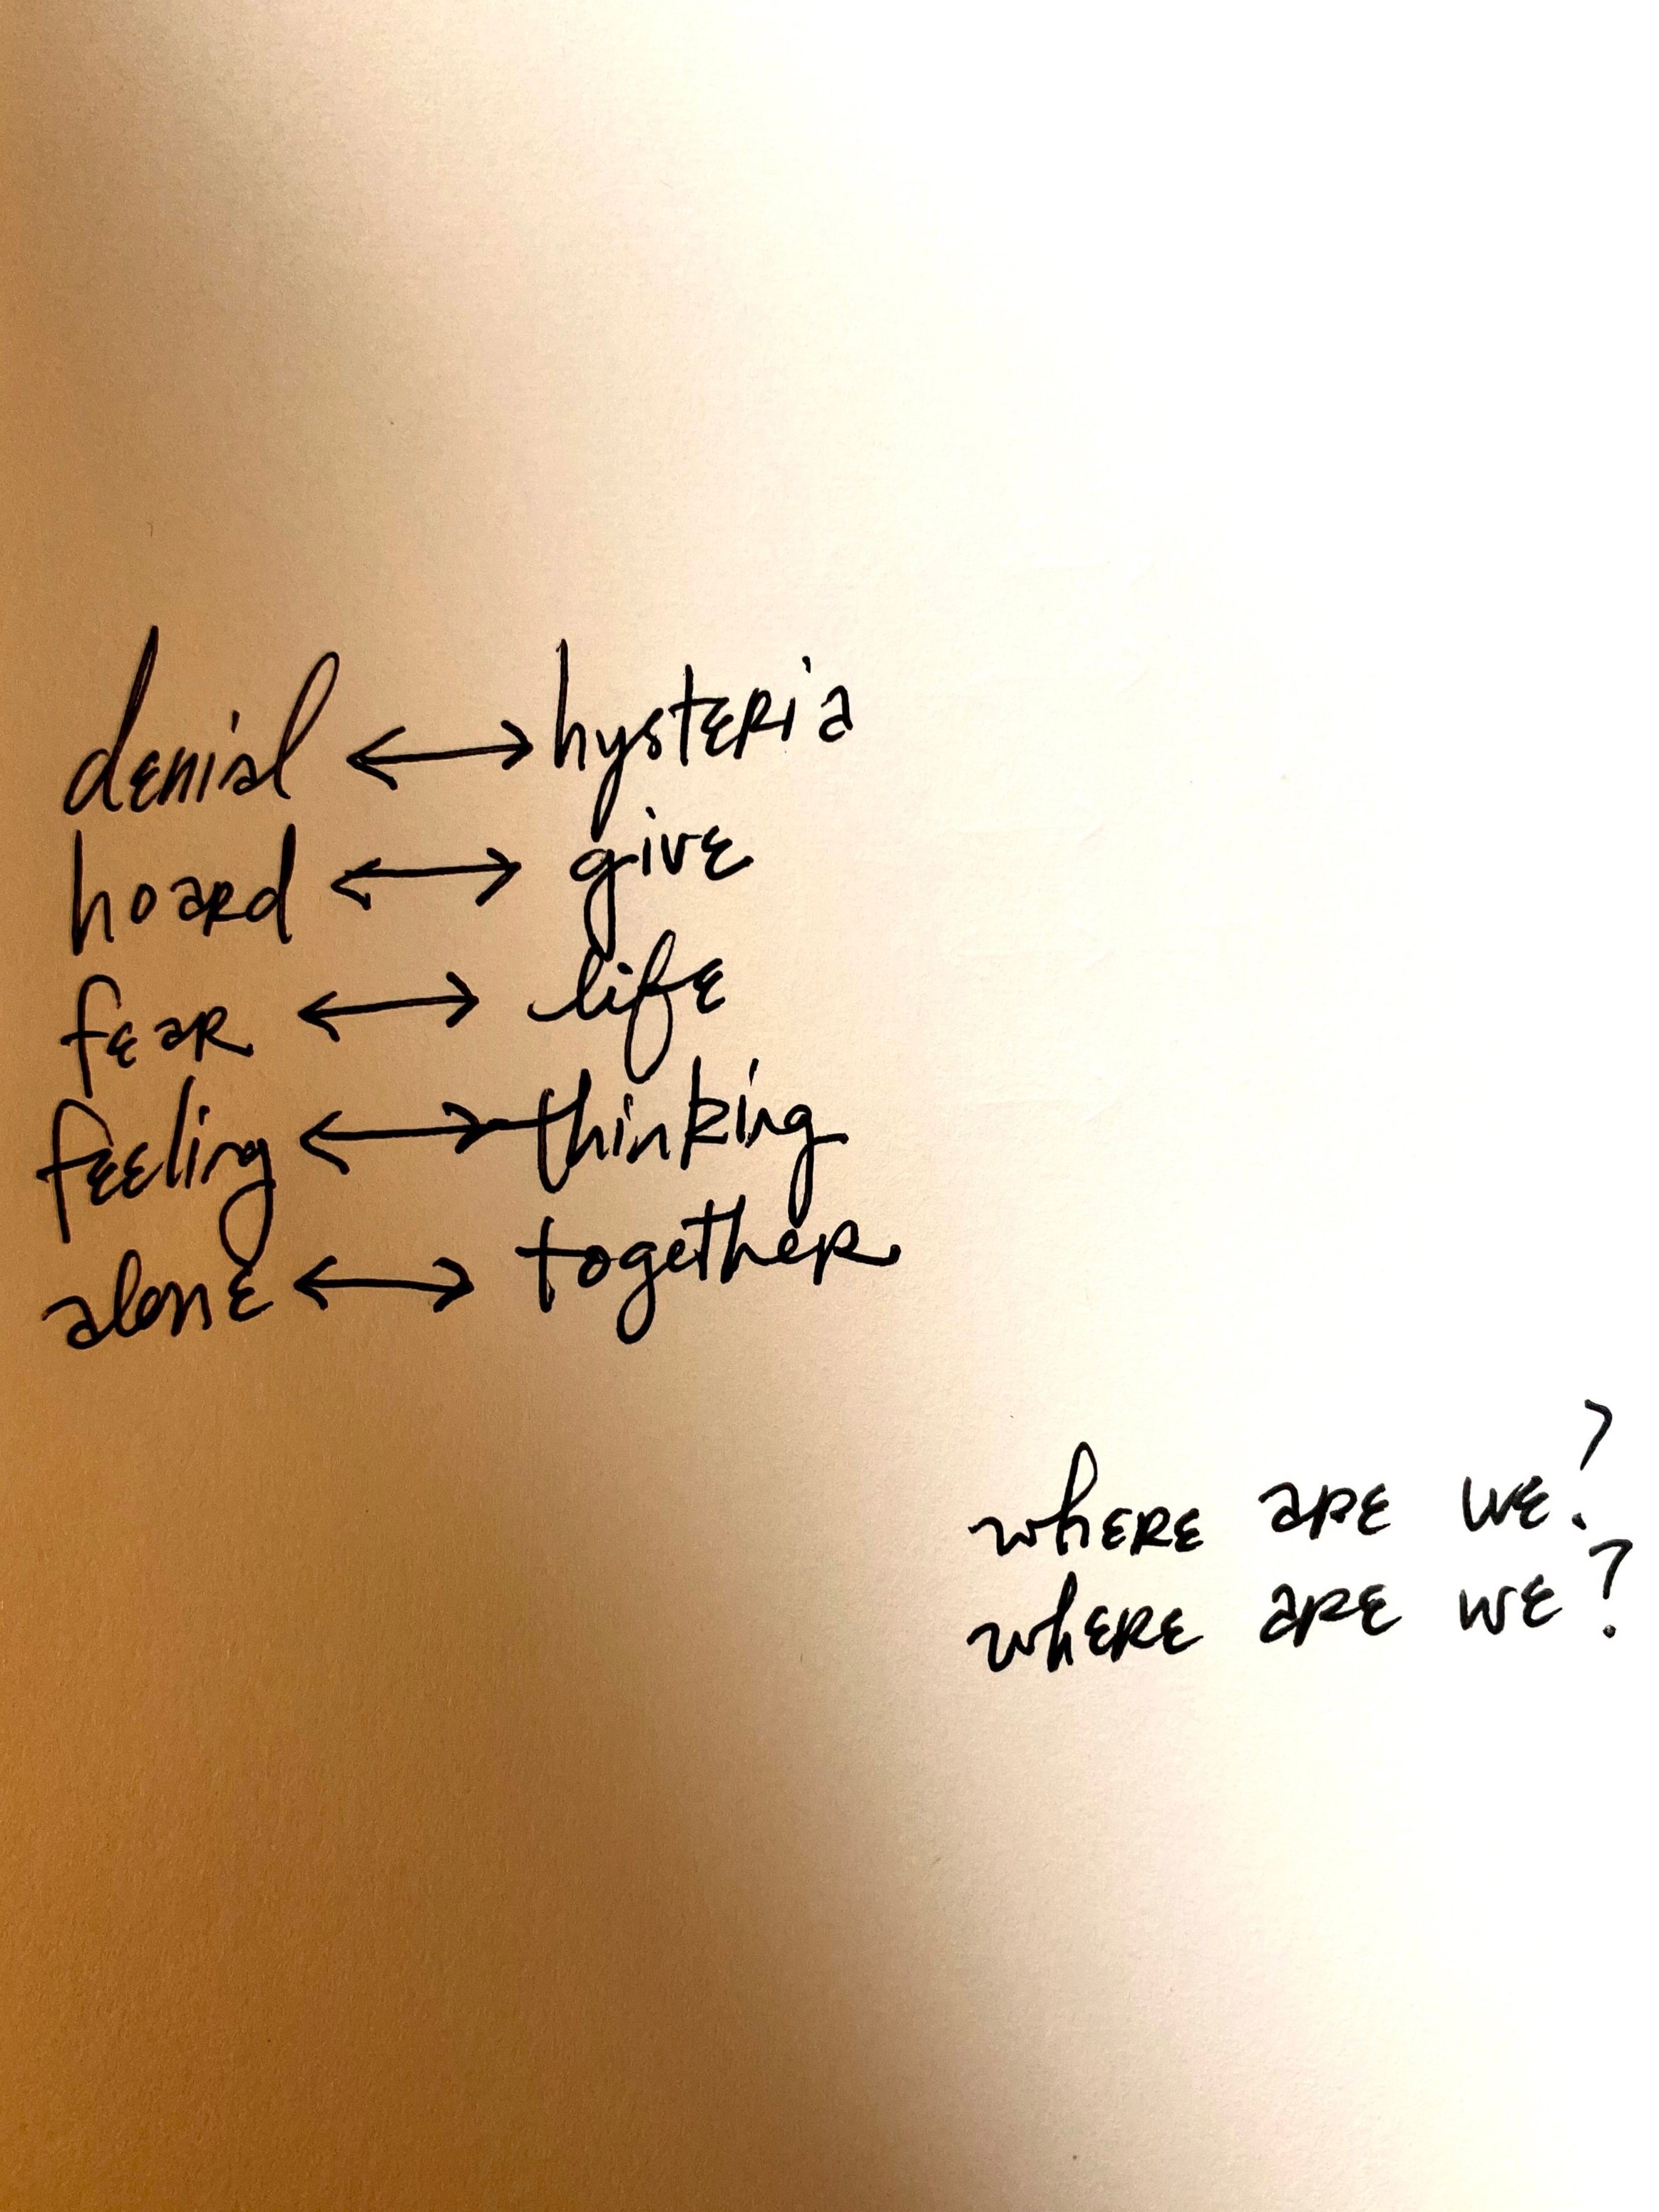 denial ↔ hysteria
hoard ↔ give
fear ↔ life
feeling ↔ thinking
alone ↔ together
where are we?
where are we?